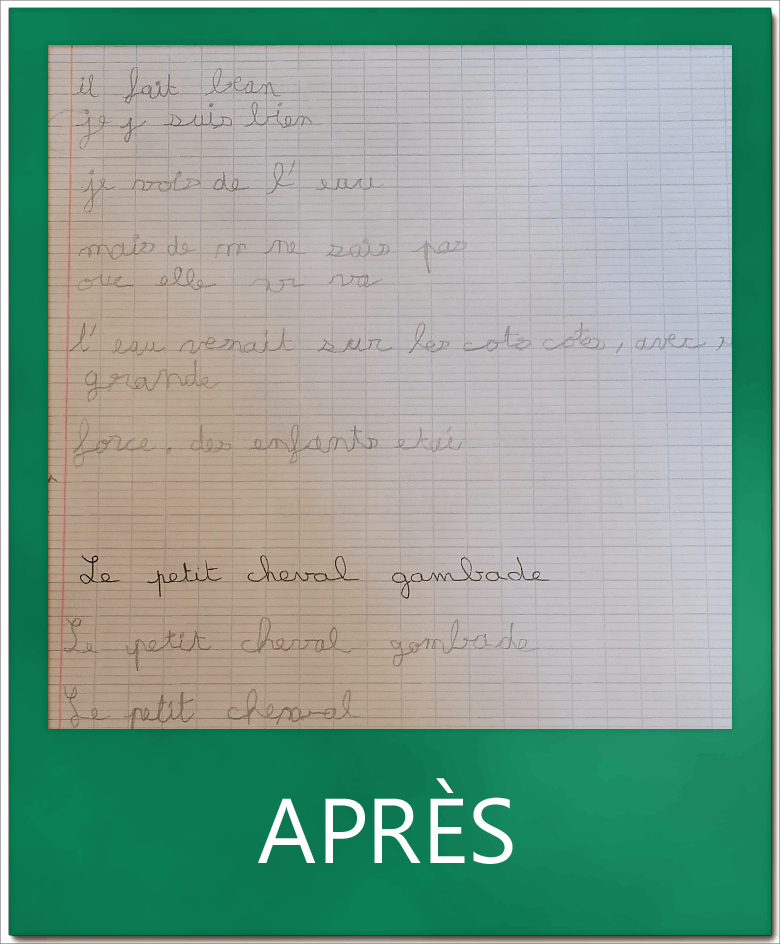 il fait beau
je y suis bien
je vois de l'eau
mais de m ne sais pas
oue elle va
l'eau venait sur les cots cotes, avec
grande
force. des enfants
Le petit cheval gambade
Le petit cheval gambade
Le petit cheval
APRÈS